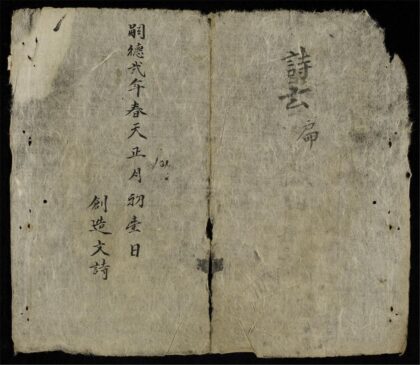 詩云
篇
嗣德弍年春天正月初壹日
創造文詩